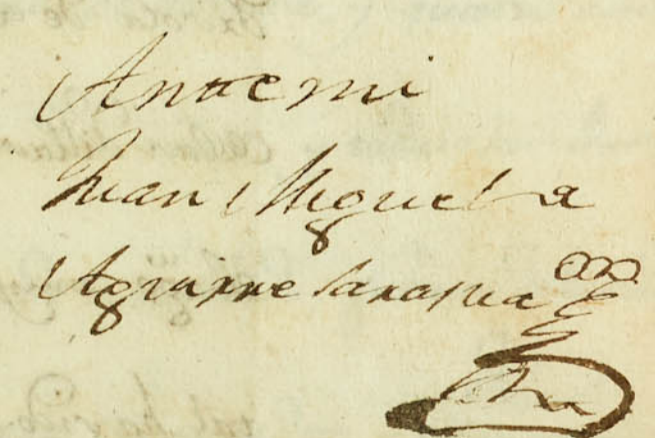 Ante mi
Juan Miguel de
Aguirre Sarasua